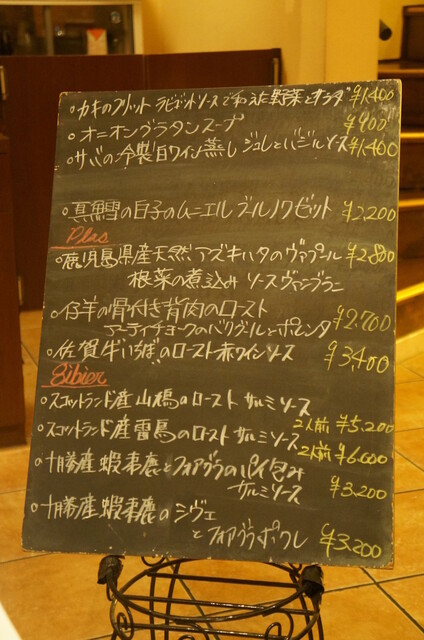 ・カキのフリット ラビゴットソースで和えた野菜とサラダ ¥1,400
・オニオングラタンスープ ¥900
・サバの冷製白ワイン蒸し ジュレとバジルソース ¥1,400
・真鱈の白子のムニエル ブールノワゼット ¥2,200
Plas
・鹿児島県産天然アズキハタのヴァプール ¥2,800
根菜の煮込み ソースヴァンブラン
・仔羊の骨付き背肉のロースト
アーティチョークのバリグールとポレンタ ¥2,700
・佐賀牛いちぼのロースト赤ワインソース ¥3,400
Gibier
・スコットランド産山鳩のロースト サルミソース
2人前 ¥5,200
・スコットランド産雷鳥のロースト サルミソース
2人前 ¥6,600
・十勝産蝦夷鹿とフォアグラのパイ包み
サルミソース ¥3,200
・十勝産蝦夷鹿のシヴェ
とフォアグラポワレ ¥3,200